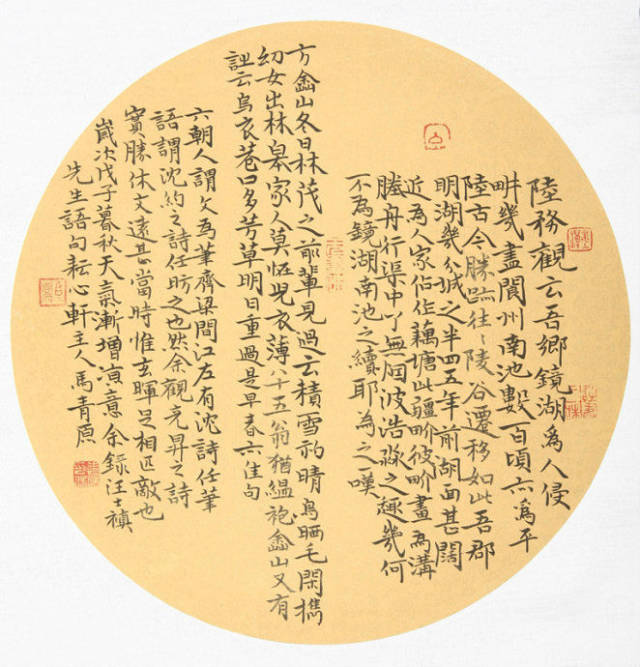 陸務觀云吾鄉鏡湖爲人侵
畊幾盡閬州南池數百頃亦爲平
陸古今勝蹟往々陵谷遷移如此吾郡
明湖幾分城之半四五年前湖面甚闊
近爲人家佔作藕塘此疆畍彼畍畫爲溝
塍舟行渠中了無烟波浩淼之趣幾何
不爲鏡湖南池之續耶爲之一嘆
方盦山冬日林茂之前輩見過云積雪初晴鳥晒毛閑攜
幼女出林皋家人莫恠兒衣薄八十五翁猶縕袍盦山又有
云烏衣巷口多芳草明日重過是早春亦佳句
六朝人謂欠爲筆齊梁間江左有沈詩任筆
語謂沈約之詩任昉之也然余觀彥昇之詩
實勝休文遠甚當時惟玄暉足相匹敵也
歲次戊子暮秋天氣漸增涼意余錄汪士禎
先生語句耘心軒主人馬青原